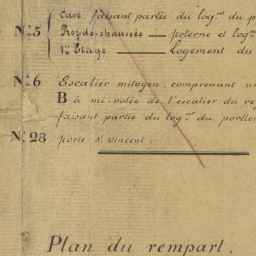 Cave, faisant partie du log.nt du p
N.° 5 Rez-de-chaussée — poterne et log.
1.er Etage — Logement du
N.° 6 Escalier mitoyen, comprenant un
B à mi-volée de l'escalier du re
faisant partie du log.nt du portier
N.° 28 porte S.t Vincent.
Plan du rempart.